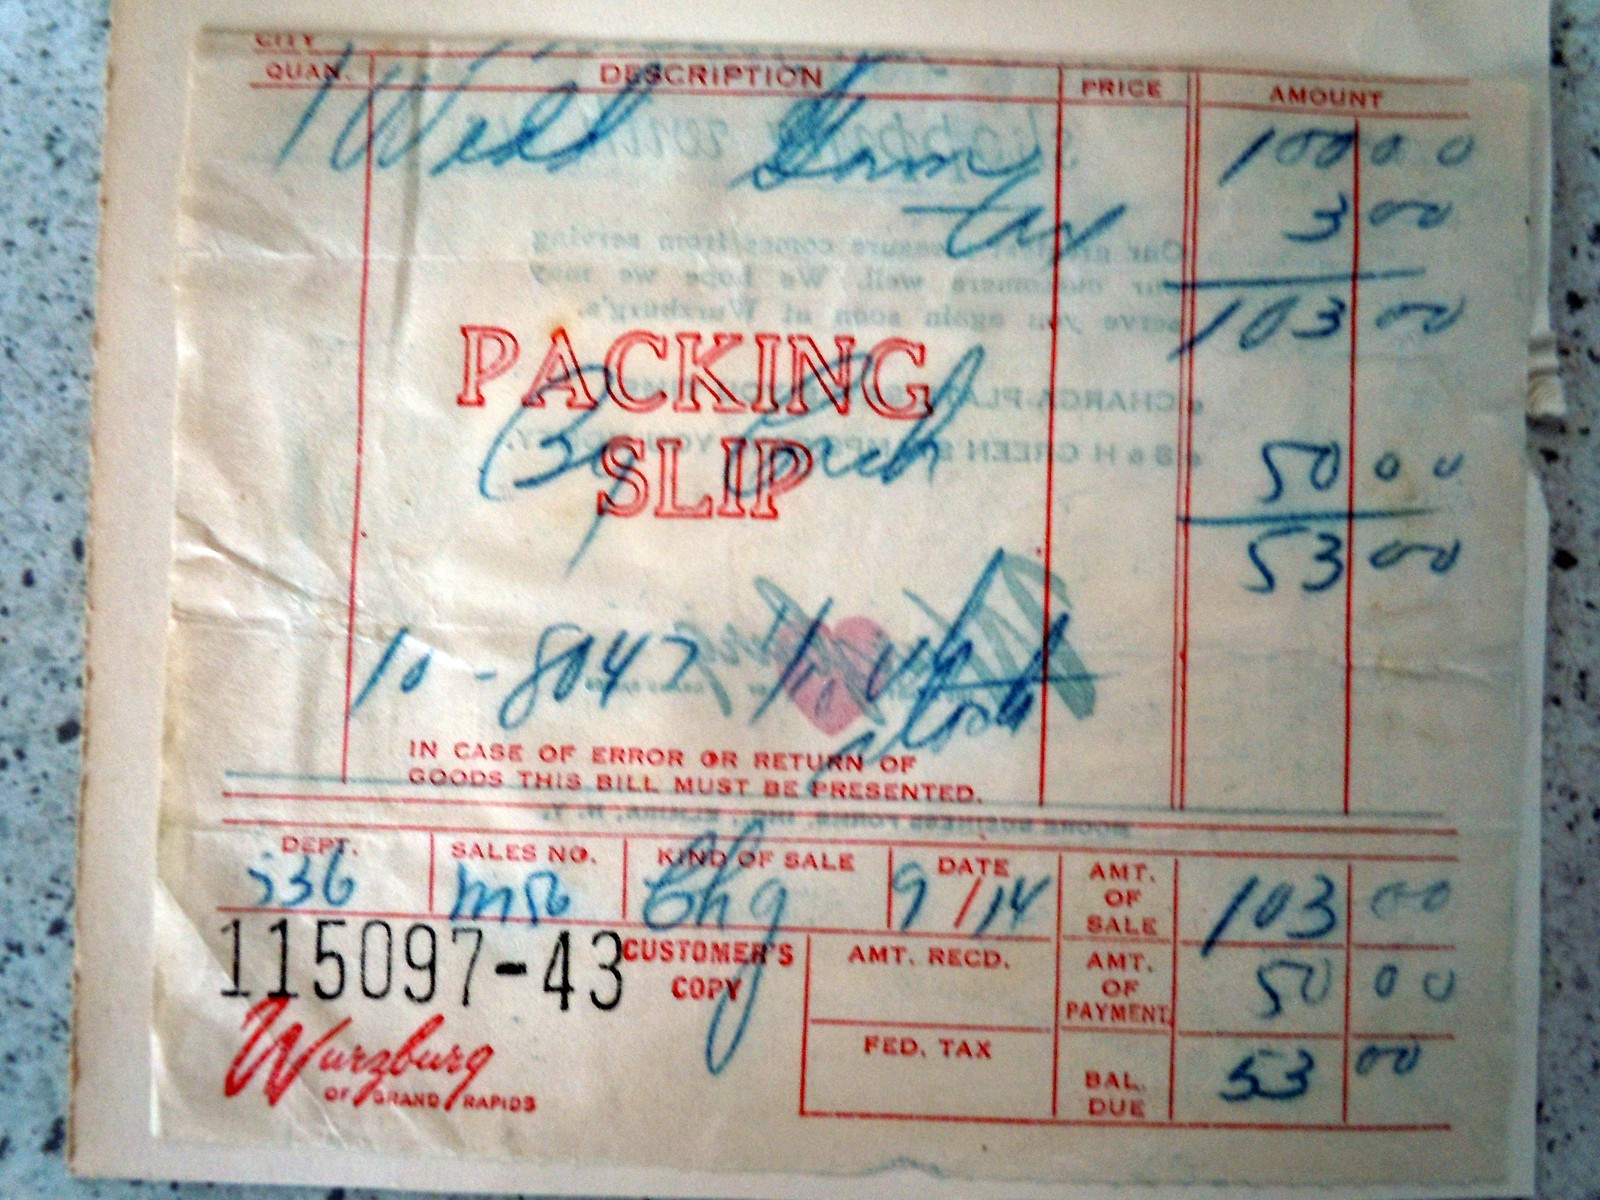 CITY
QUAN. DESCRIPTION PRICE AMOUNT
1 Wedd Gown 100 00
Tax 3 00
103 00
PACKING
SLIP
By Cash 50 00
53 00
10 - 8047
stock
IN CASE OF ERROR OR RETURN OF
GOODS THIS BILL MUST BE PRESENTED.
DEPT. SALES NO. KIND OF SALE DATE AMT. OF SALE
536 Chg 9/14 103 00
115097-43 CUSTOMER'S COPY AMT. RECD. AMT. OF PAYMENT 50 00
Wurzburg FED. TAX BAL. DUE 53 00
OF GRAND RAPIDS
Our greatest pleasure comes from serving
our customers well. We hope we may
serve you again soon at Wurzburg's.
MOORE BUSINESS FORMS, INC., ELMIRA, N. Y.